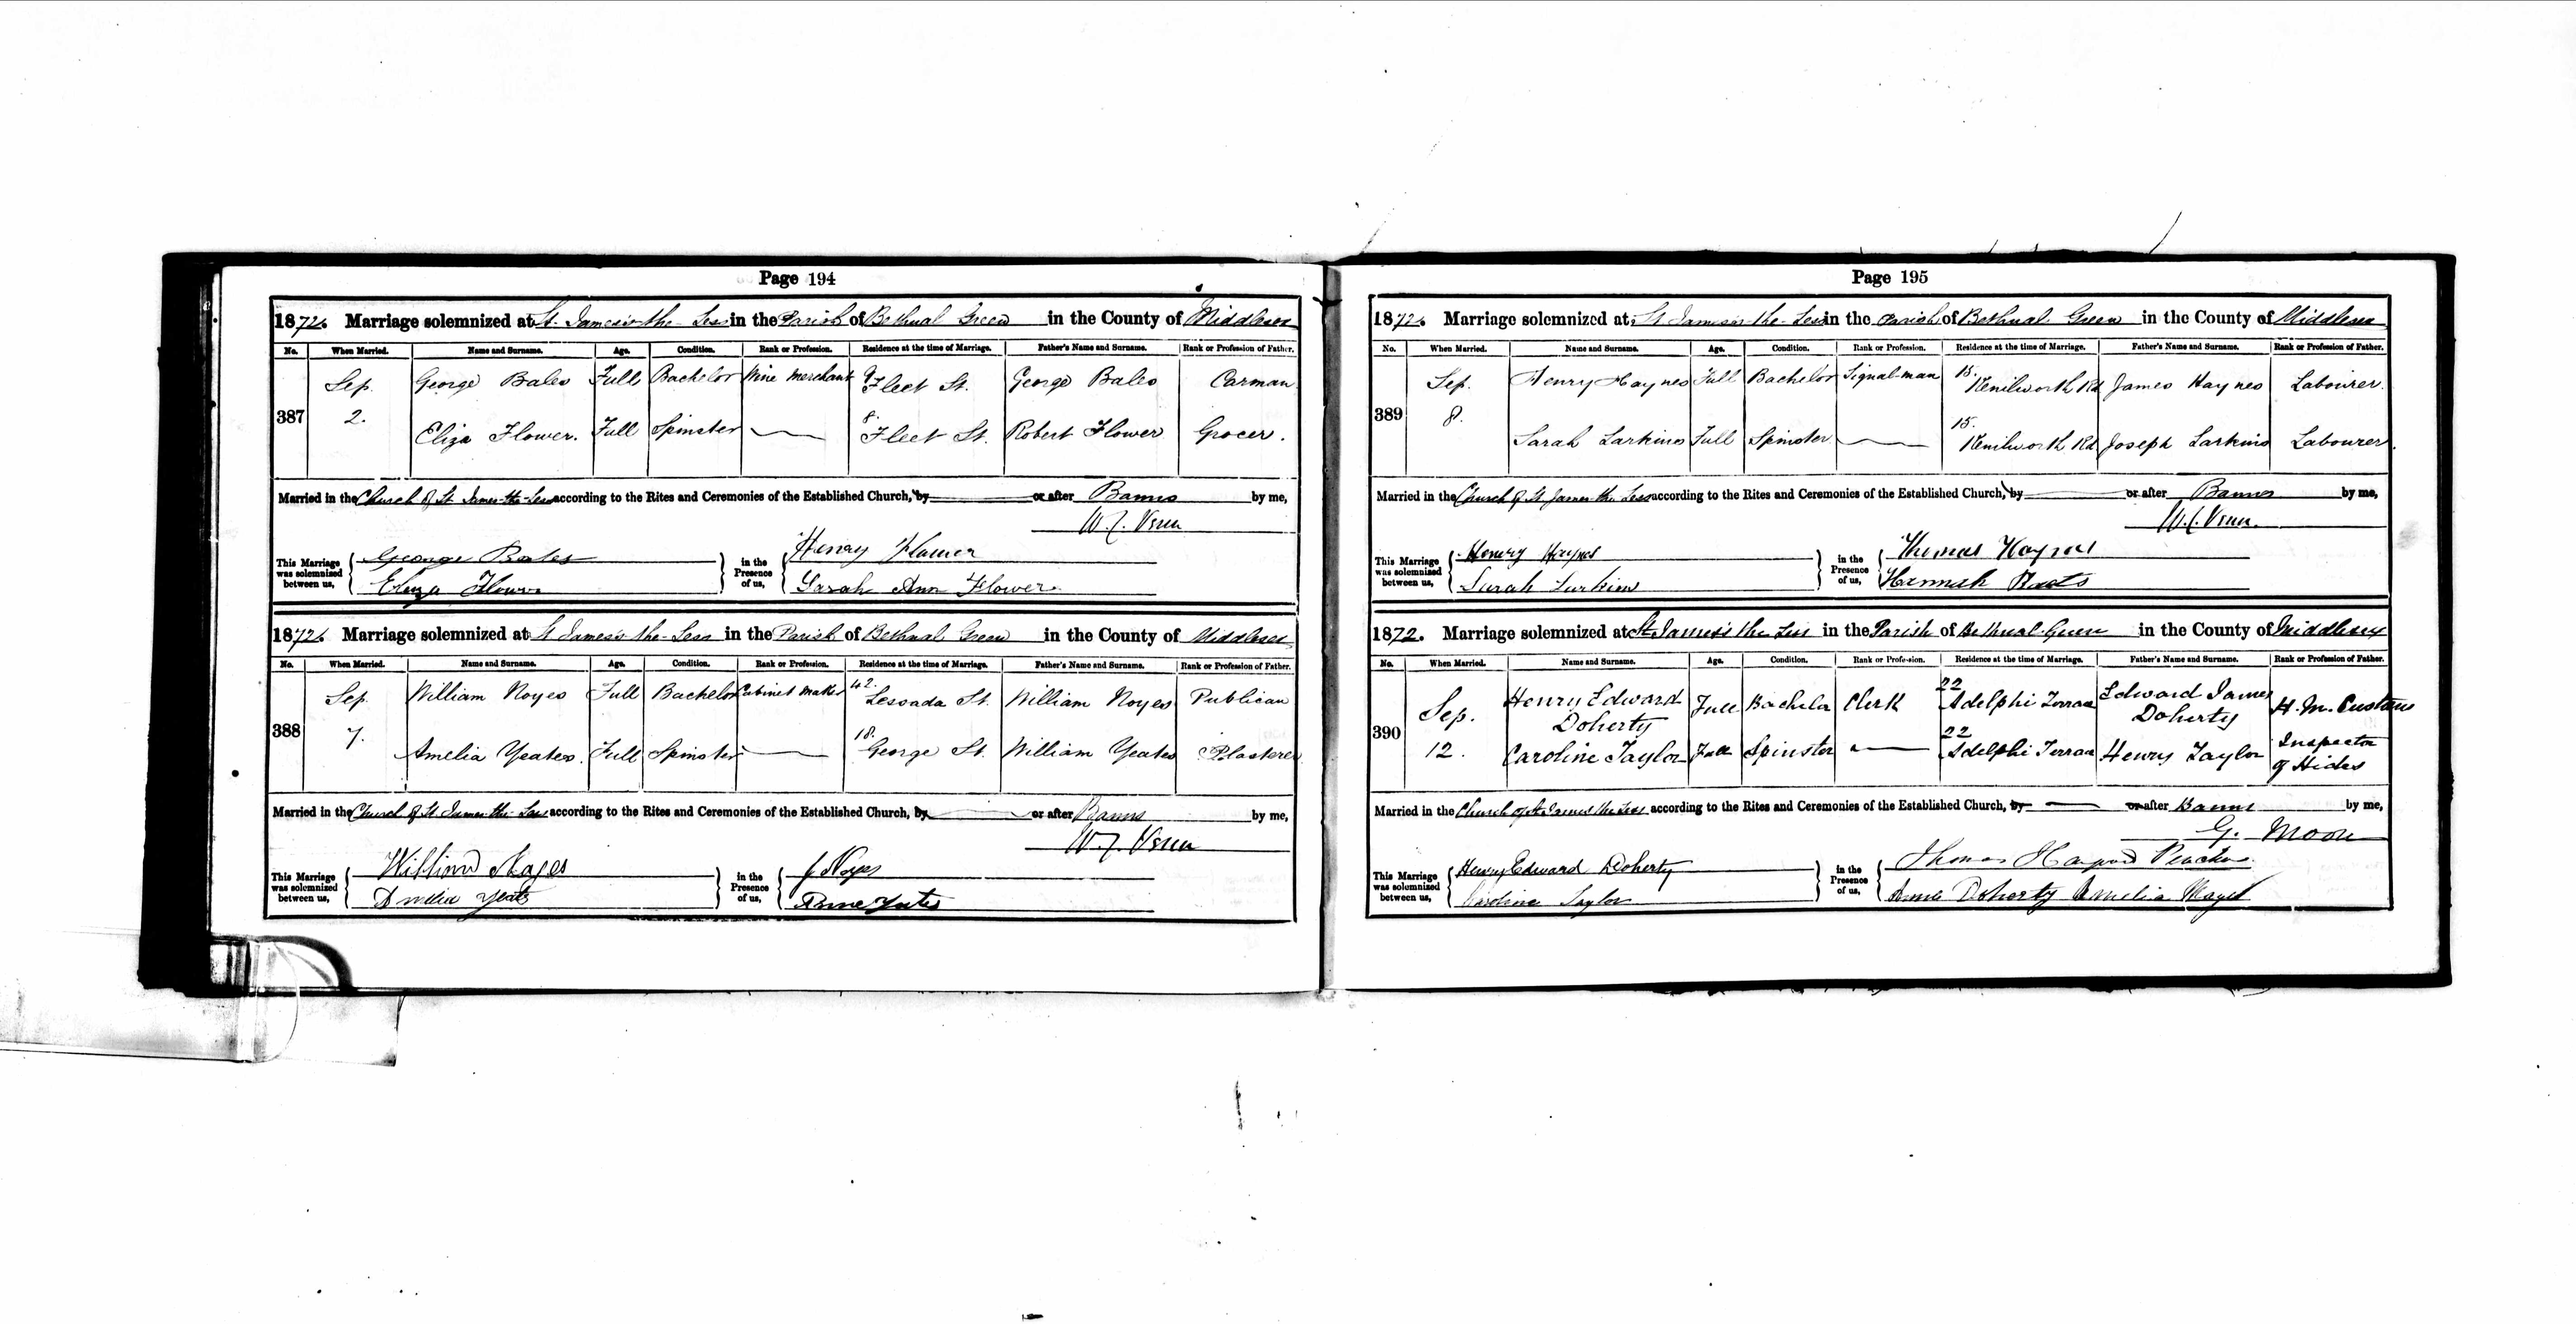 Page 194
1872. Marriage solemnized at St. James's-the-Less in the Parish of Bethnal Green in the County of Middlesex
No. When Married. Name and Surname. Age. Condition. Rank or Profession. Residence at the time of Marriage. Father's Name and Surname. Rank or Profession of Father.
387 Sep. 2. George Bales Full Bachelor Wine Merchant 9 Fleet St. George Bales Carman
Eliza Flower. Full Spinster 8. Fleet St. Robert Flower Grocer.
Married in the Church of St James-the-Less according to the Rites and Ceremonies of the Established Church, by or after Banns by me,
W. J. Venn
This Marriage was solemnized between us, George Bales in the Presence of us, Henry Flower
Eliza Flower Sarah Ann Flower
1872. Marriage solemnized at St James's-the-Less in the Parish of Bethnal Green in the County of Middlesex
No. When Married. Name and Surname. Age. Condition. Rank or Profession. Residence at the time of Marriage. Father's Name and Surname. Rank or Profession of Father.
388 Sep. 7. William Noyes Full Bachelor Cabinet Maker 42. St. William Noyes Publican
Amelia Yeates. Full Spinster 18. George St. William Yeates Plasterer
Married in the Church of St James-the-Less according to the Rites and Ceremonies of the Established Church, by or after Banns by me,
W. J. Venn
This Marriage was solemnized between us, William Noyes in the Presence of us, J Noyes
Amelia Yeats
Page 195
1872. Marriage solemnized at St James's-the-Less in the Parish of Bethnal Green in the County of Middlesex
No. When Married. Name and Surname. Age. Condition. Rank or Profession. Residence at the time of Marriage. Father's Name and Surname. Rank or Profession of Father.
389 Sep. 8. Henry Haynes Full Bachelor Signal-man 15. Kenilworth Rd James Haynes Labourer.
Sarah Larkins Full Spinster 15. Kenilworth Rd Joseph Larkins Labourer.
Married in the Church of St James-the-Less according to the Rites and Ceremonies of the Established Church, by or after Banns by me,
W. J. Venn.
This Marriage was solemnized between us, Henry Haynes in the Presence of us, Thomas Haynes
Sarah Larkins Hannah
1872. Marriage solemnized at St James's the Less in the Parish of Bethnal-Green in the County of Middlesex
No. When Married. Name and Surname. Age. Condition. Rank or Profession. Residence at the time of Marriage. Father's Name and Surname. Rank or Profession of Father.
390 Sep. 12. Henry Edward Doherty Full Bachelor Clerk 22 Adelphi Terrace Edward James Doherty H. M. Customs
Caroline Taylor Full Spinster 22 Adelphi Terrace Henry Taylor Inspector of Hides
Married in the Church of St James the Less according to the Rites and Ceremonies of the Established Church, by or after Banns by me,
G. Moon
This Marriage was solemnized between us, Henry Edward Doherty in the Presence of us, Thomas
Caroline Taylor Doherty Amelia